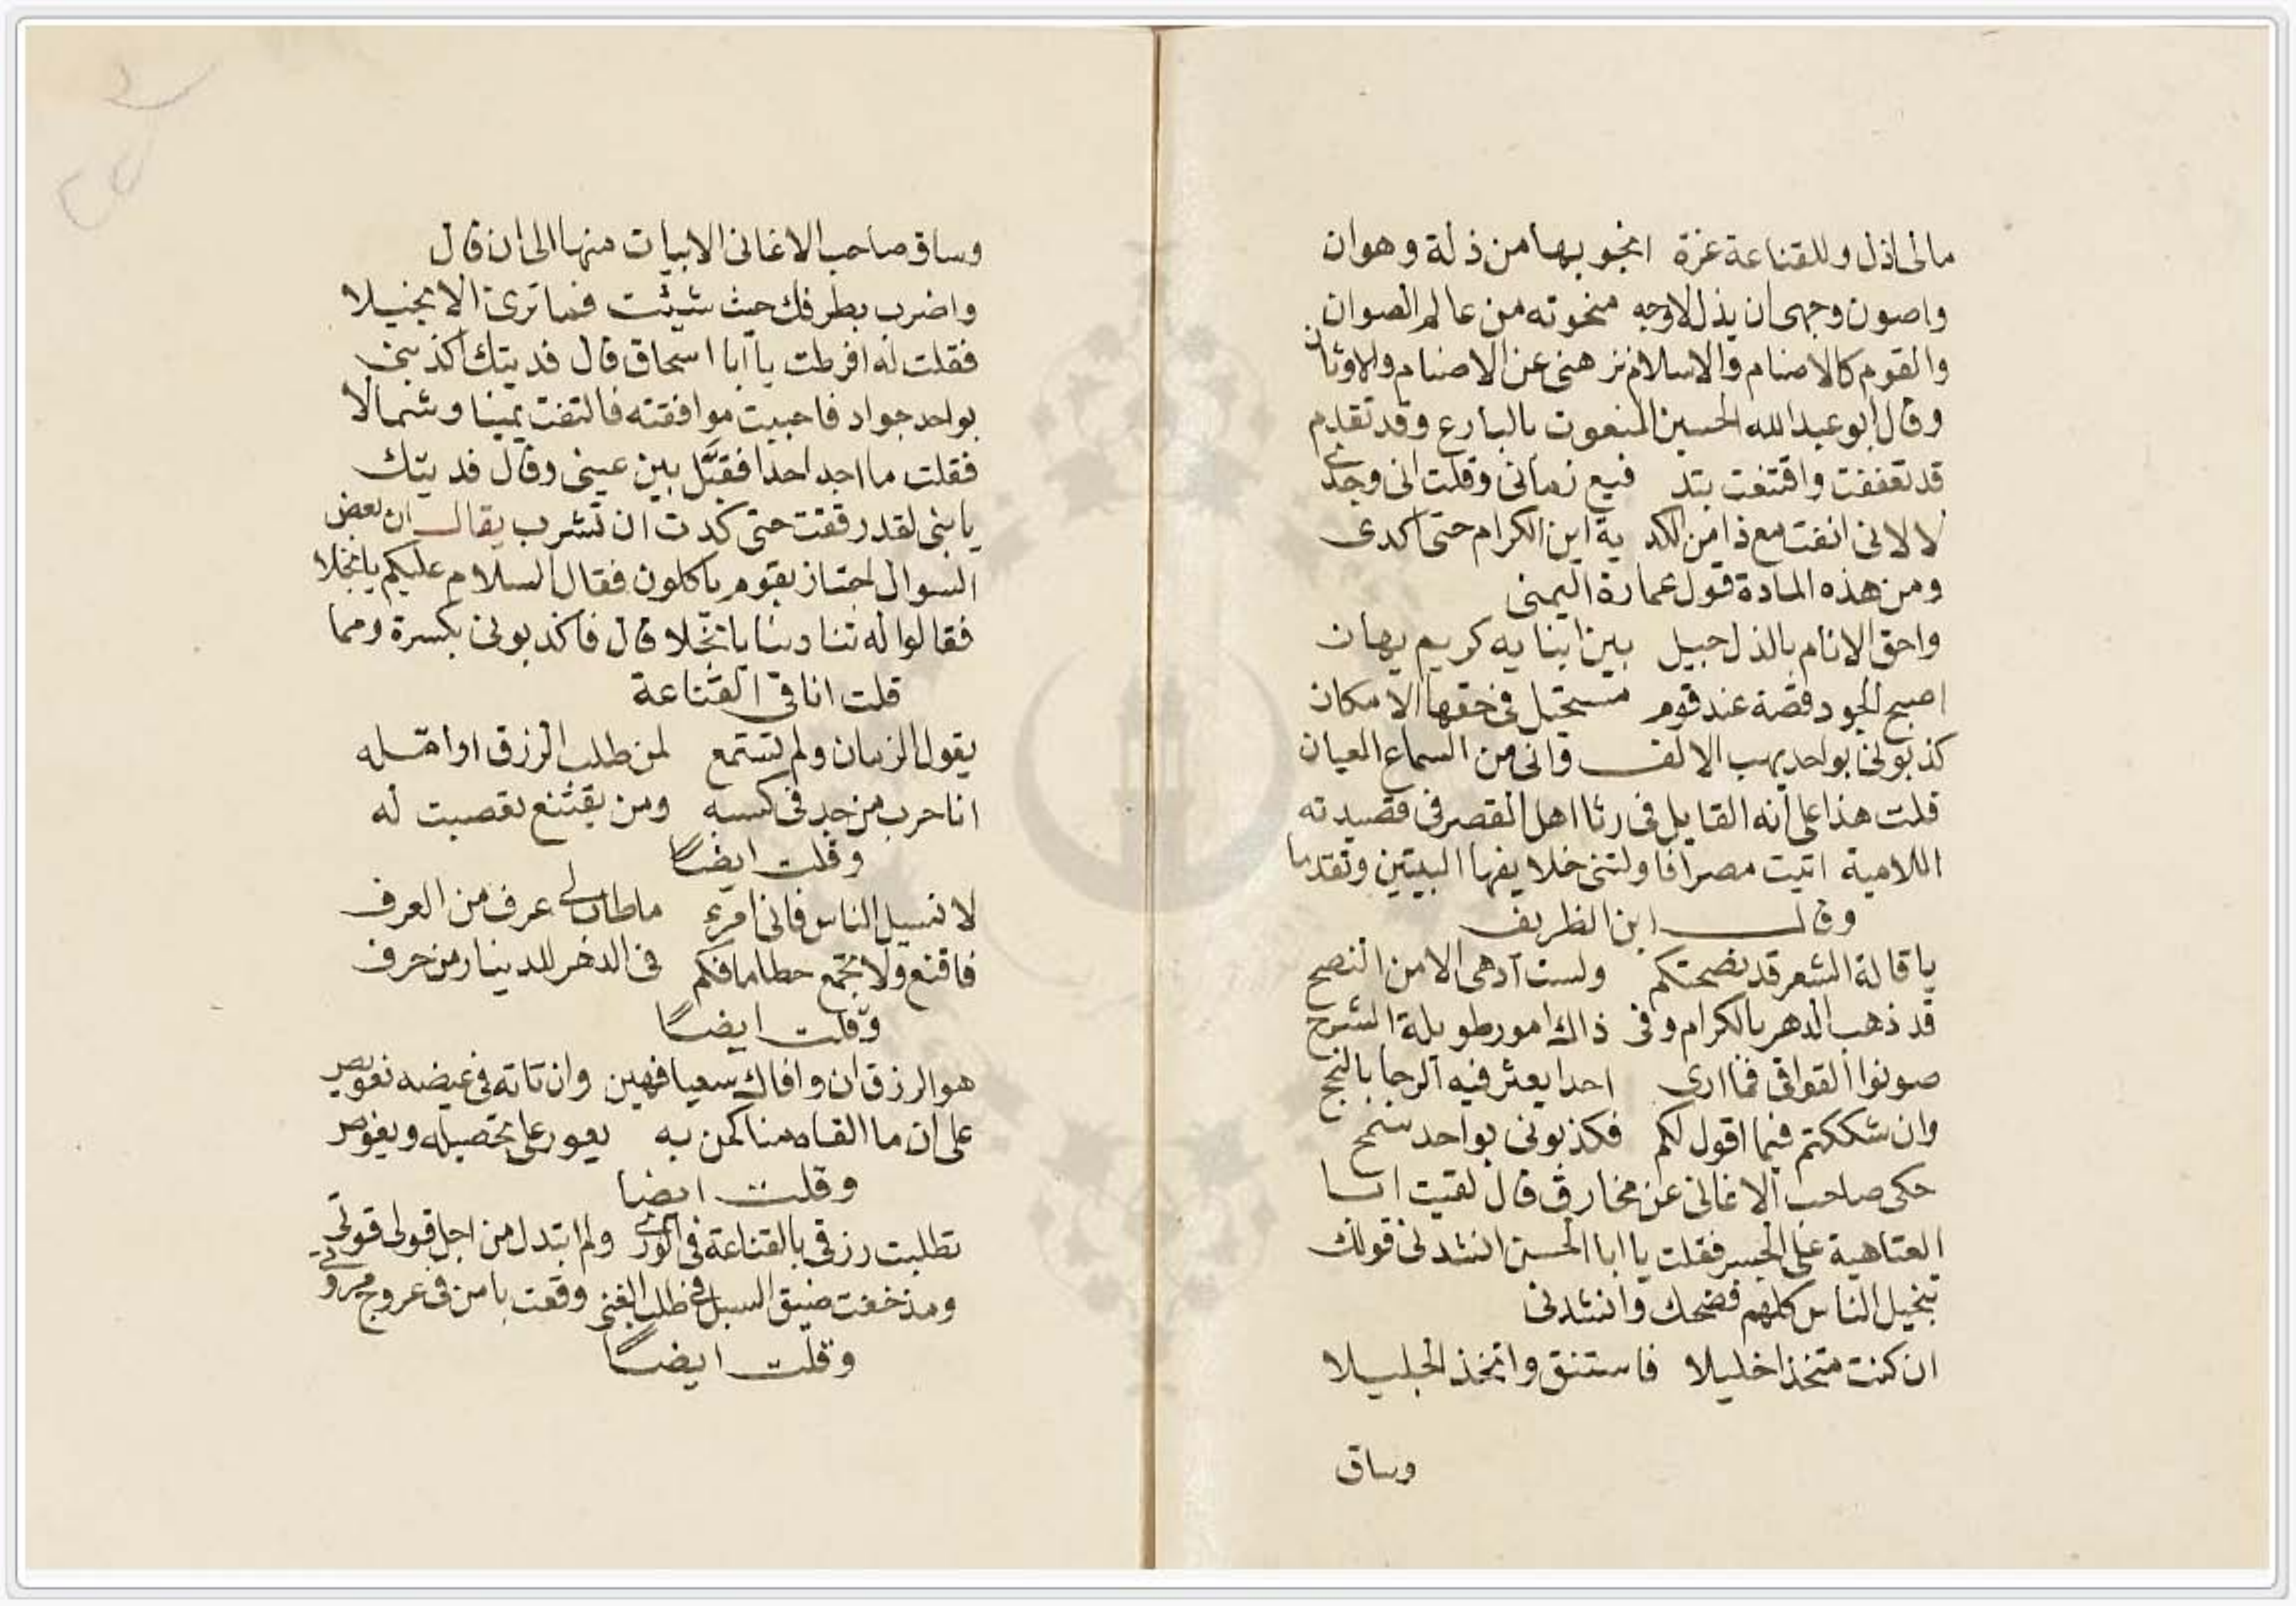 مالى اذل وللقناعة عزة انجو بها من ذلة وهوان
واصون وجهى ان يذل لاوجه منحوته من عالم الصوان
والقوم كالاصنام والاسلام نزهنى عن الاصنام والاوثان
وقال ابو عبد الله الحسين المنعوت بالبارع وقد تقدم
قد تعففت واقتنعت بتد فيع زمانى وقلت انى وجدى
لا لانى انفت مع ذا من الكد ية اين الكرام حتى اكدى
ومن هذه المادة قول عمارة اليمنى
واحق الانام بالذل جيل بين ابنايه كريم يهان
اصبح الجود قصة عند قوم مستحيل فى حقها الامكان
كذبونى بواحد يهب الالف وانى من السماع العيان
قلت هذا على انه القايل فى رثا اهل القصر فى قصيدته
اللامية اتيت مصرا فاولتنى خلايفها البيتين وتقدما
وقال ابن الظريف
يا قالة الشعر قد نصحتكم ولست ادهى الا من النصح
قد ذهب الدهر بالكرام وفى ذاك امور طويلة الشرح
صونوا القوافى فما ارى احدا يعثر فيه الرجا بالنجح
وان شككتم فيما اقول لكم فكذبونى بواحد سمح
حكى صاحب الاغانى عن مخارق قال لقيت ابا
العتاهية على الجسر فقلت يا ابا الحسن انشدنى قولك
تبخيل الناس كلهم فضحك وانشدنى
ان كنت متخذا خليلا فاستنق واتخذ الخليلا
وساق
وساق صاحب الاغانى الابيات منها الى ان قال
واضرب بطرفك حيث شيئت فما ترى الا بخيلا
فقلت له افرطت يا ابا اسحاق قال فديتك اكذبنى
بواحد جواد فاحببت موافقته فالتفت يمينا وشمالا
فقلت ما اجد احدا فقبَّل بين عينى وقال فديتك
يا بنى لقد رققت حتى كدت ان تشرب يقال ان بعض
السوال اجتاز بقوم ياكلون فقال السلام عليكم يا بخلا
فقالوا له تنادينا يا بخلا قال فاكذبونى بكسرة ومما
قلت انا فى القناعة
يقول الزمان ولم تستمع لمن طلب الرزق او امّله
انا حرب من جد فى كسبه ومن يقتنع تعصبت له
وقلت ايضًا
لا تسيل الناس فانى امرء ما طاب لى عرف من العرف
فاقنع ولا تجمع حطاما فكم فى الدخر للدينار من حرف
وقلت ايضًا
هو الرزق ان وافاك سعيا فهين وان تاته فى غيضه تعويص
على ان ما القاه منا كمن به يعور على تحصيله ويغوص
وقلت ايضا
تطلبت رزقى بالقناعة فى الورى ولم ابتدل من اجل قولى قوتى
ومذ خفت ضيق السبل فى طلب الغنى وقعت بامن فى عروج مروتى
وقلت ايضًا